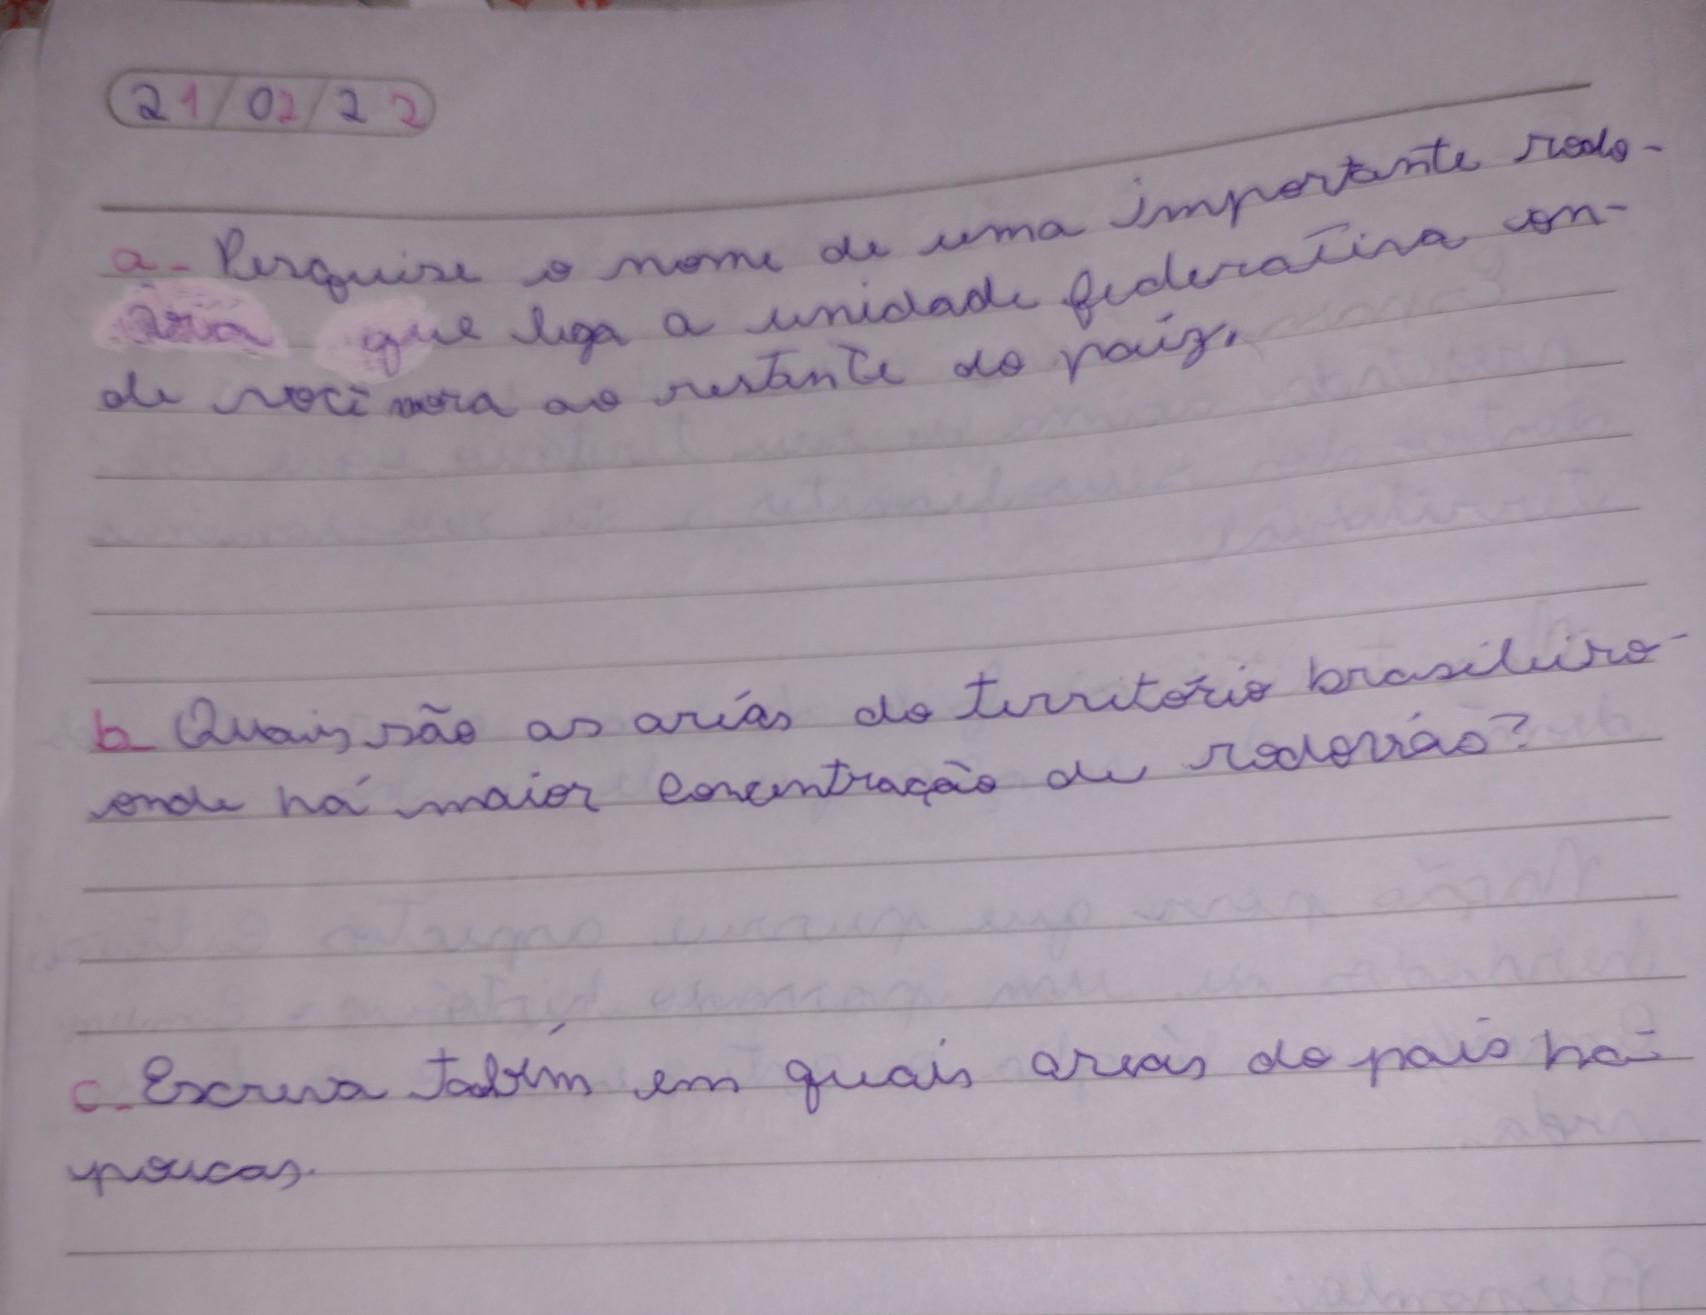 21/02/22
a- Pesquise o nome de uma importante rodo-
ária que liga a unidade federativa on-
de você mora ao restante do país.
b Quais são as aréas do território brasileiro-
onde há maior concentração de rodovias?
c- Escreva tabém em quais areas do pais há-
poucas.